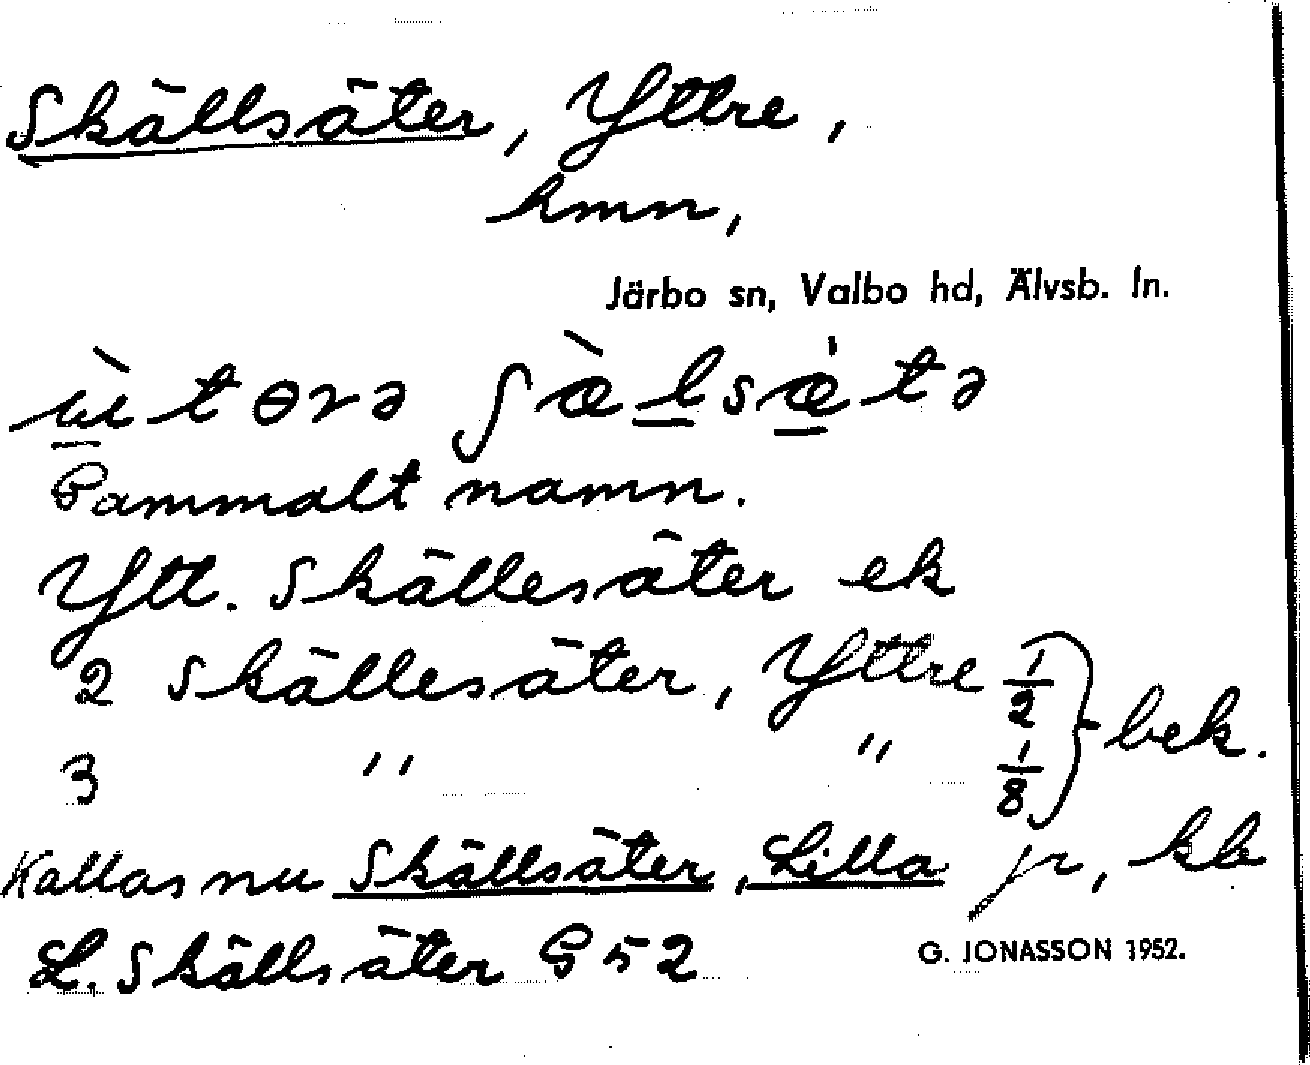 Skällsäter, Yttre,
hmn,
Järbo sn, Valbo hd, Älvsb. ln.
Gammalt namn.
Ytt. Skällesäter ek
2 Skällesäter, Yttre 1/2 } bek.
3 " " 1/8
Kallas nu Skällsäter, Lilla jr, kb
L. Skällsäter G 52
G. JONASSON 1952.